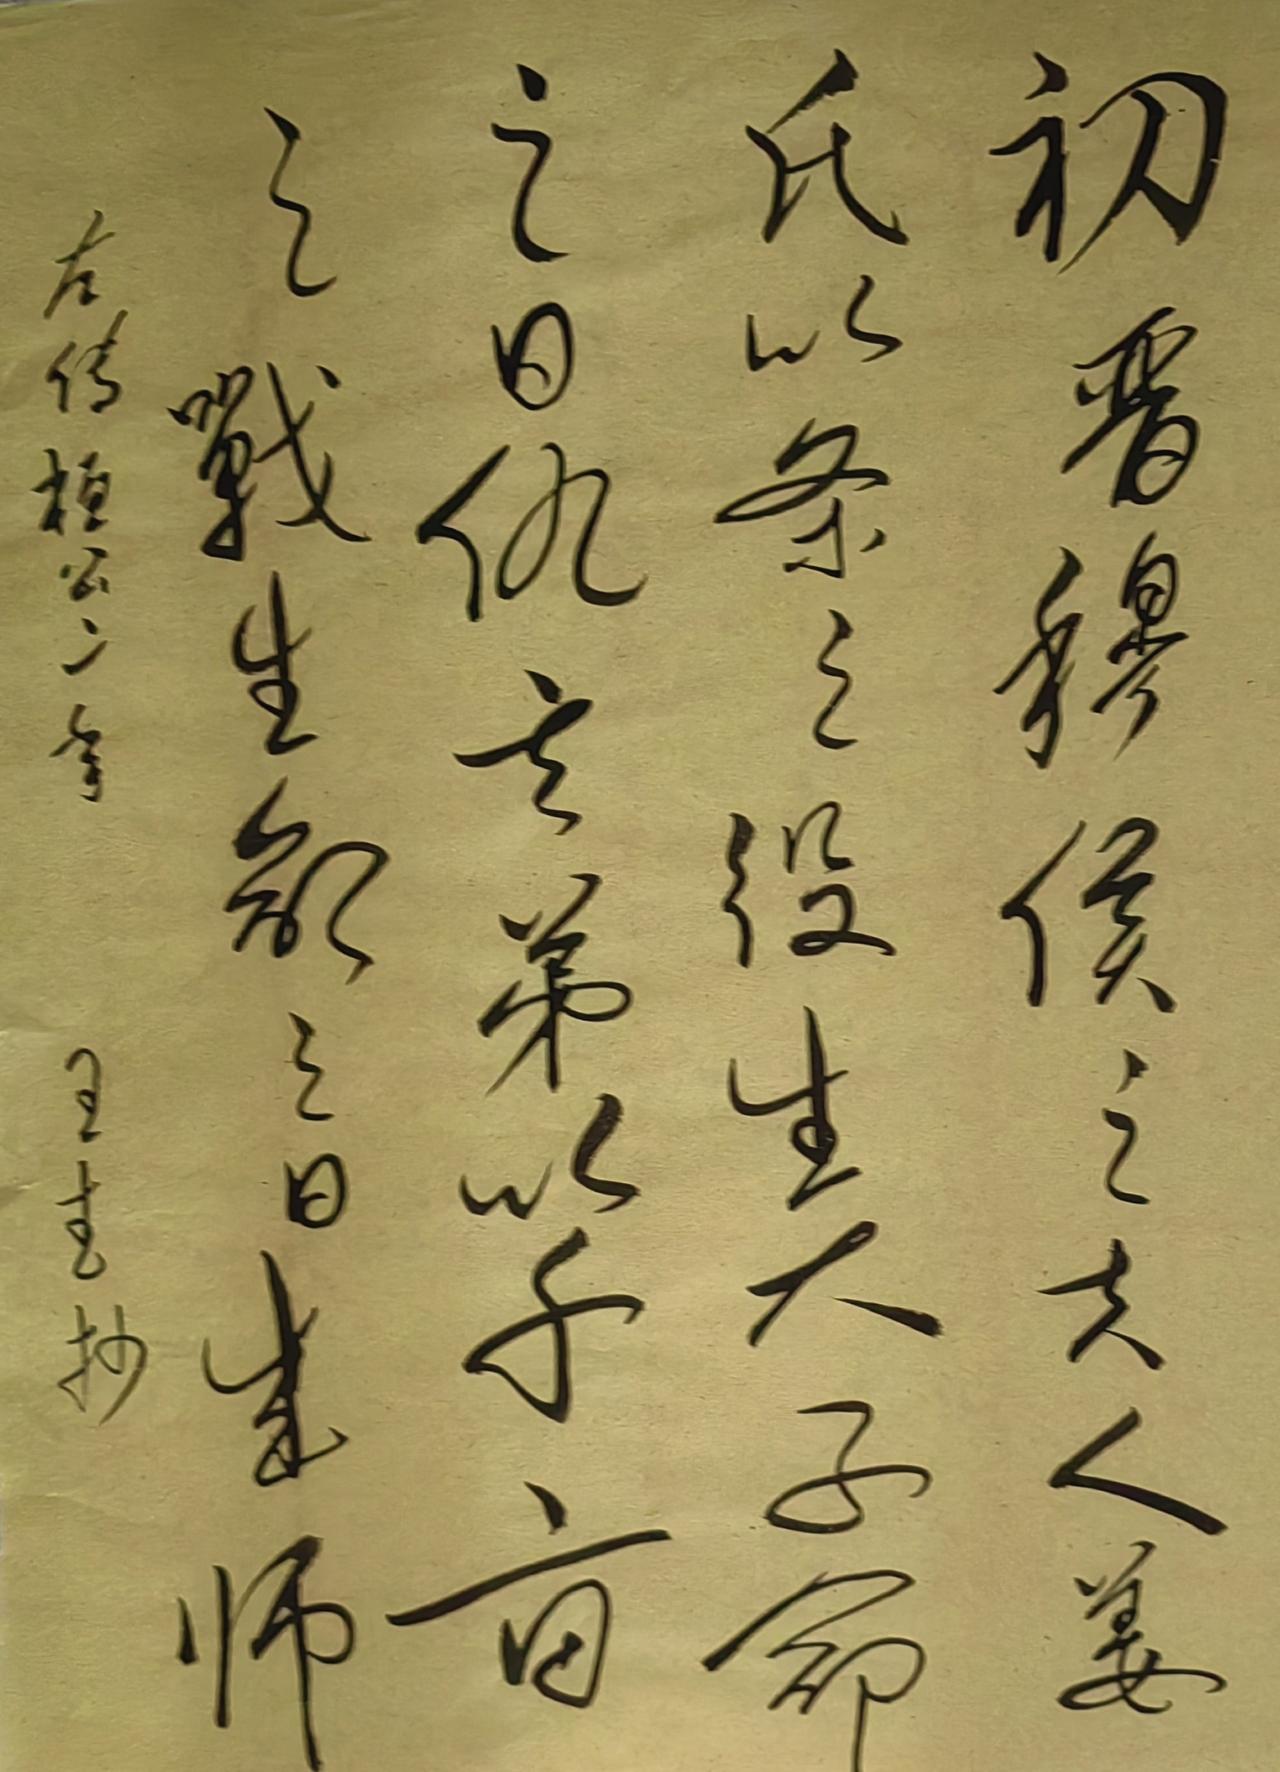 初晋穆侯之夫人姜
氏以条之役生大子命
之曰仇其弟以千亩
之戰生命之曰成师
左传桓公二年
王志抄